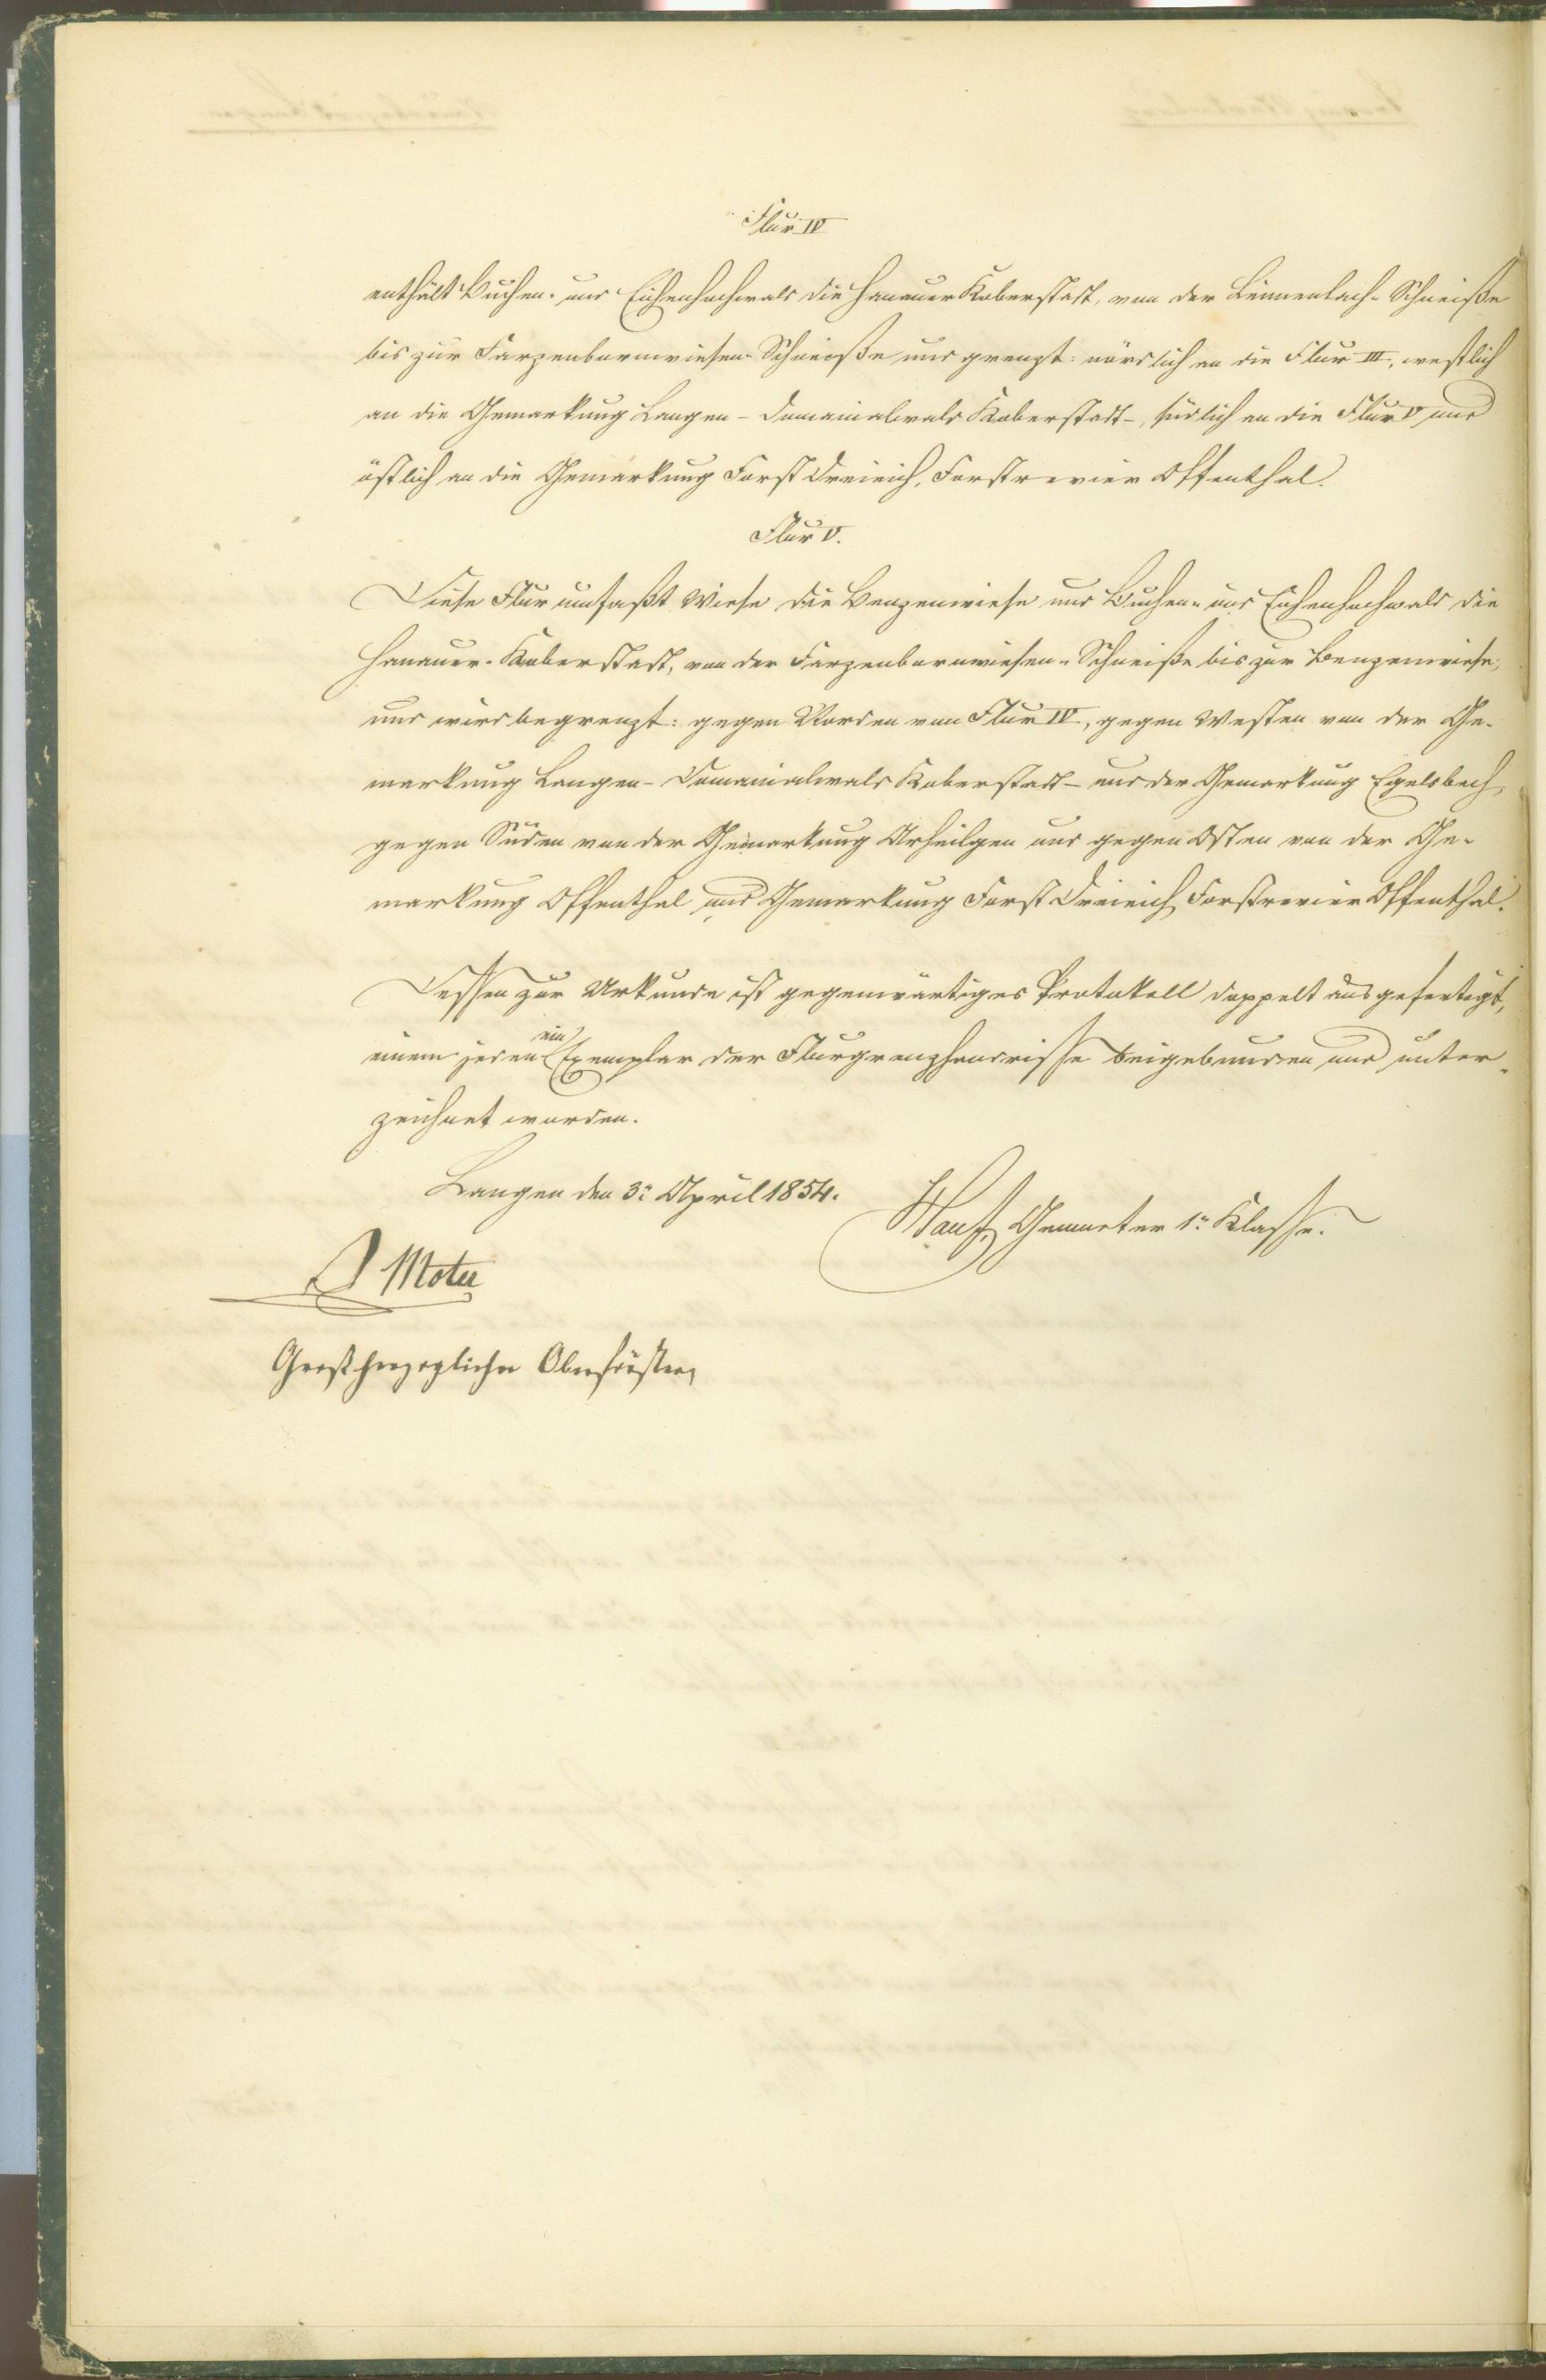 Flur IV
enthält Buchen- und Eichenhochwald die Hanauer Koberstadt, von der Linnenbach-Schneiße
bis zur Farzenbornwiesen-Schneiße und grenzt: nördlich an die Flur III, westlich
an die Gemarkung Langen - Domainalwald Koberstadt -, südlich an die Flur V und
östlich an die Gemarkung Forst Dreieich, Forstrevier Offenthal.
Flur V.
Diese Flur umfaßt Wiese die Benzenwiese und Buchen- und Eichenhochwald die
Hanauer-Koberstadt, von der Farzenbornwiesen-Schneiße bis zur Benzenwiese,
und wird begrenzt: gegen Norden von Flur IV, gegen Westen von der Ge-
markung Langen - Domainalwald Koberstadt - und der Gemarkung Egelsbach,
gegen Süden von der Gemarkung Arheilgen und gegen Osten von der Ge-
markung Offenthal und Gemarkung Forst Dreieich, Forstrevier Offenthal.
Dessen zur Urkunde ist gegenwärtiges Protokoll doppelt ausgefertigt,
einem jeden ein Exemplar der Flurgrenzhandrisse beigebunden und unter-
zeichnet worden.
Langen den 3n April 1854.
Geometer 1r Klasse.
Großherzoglicher Oberförster